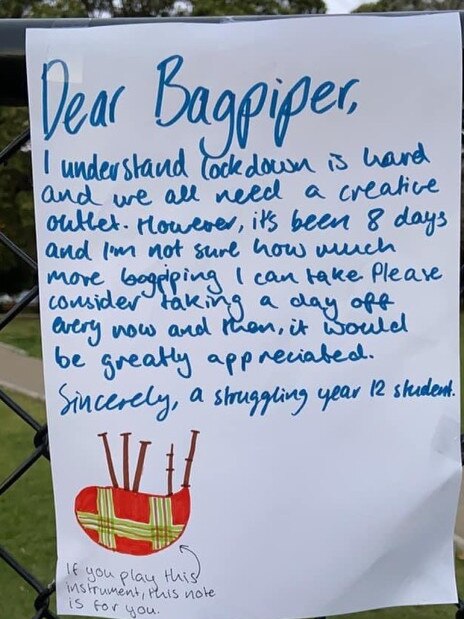 Dear Bagpiper,
I understand lockdown is hard
and we all need a creative
outlet. However, it's been 8 days
and I'm not sure how much
more bagpiping I can take. Please
consider taking a day off
every now and then, it would
be greatly appreciated.
Sincerely, a struggling year 12 student.
If you play this
instrument, this note
is for you.